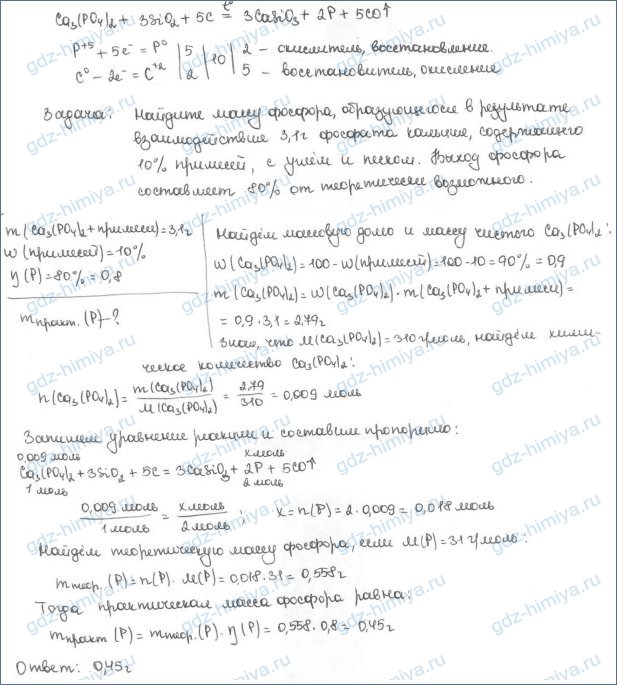 Ca₃(PO₄)₂ + 3SiO₂ + 5C =ᵗ° 3CaSiO₃ + 2P + 5CO↑
P⁺⁵ + 5e⁻ = P⁰ | 5 | 10 | 2 – окислитель, восстановление
C⁰ – 2e⁻ = C⁺² | 2 | | 5 – восстановитель, окисление
Задача: Найдите массу фосфора, образующегося в результате
взаимодействие 3,1г фосфата кальция, содержащего
10% примесей, с углём и песком. Выход фосфора
составляет 80% от теоретически возможного.
m(Ca₃(PO₄)₂ + примеси) = 3,1г
w(примесей) = 10%
η(P) = 80% = 0,8
mпракт.(P) – ?
Найдём массовую долю и массу чистого Ca₃(PO₄)₂:
w(Ca₃(PO₄)₂) = 100 – w(примесей) = 100 – 10 = 90% = 0,9
m(Ca₃(PO₄)₂) = w(Ca₃(PO₄)₂) · m(Ca₃(PO₄)₂ + примеси) =
= 0,9 · 3,1 = 2,79г
Зная, что M(Ca₃(PO₄)₂) = 310 г/моль, найдём хими-
ческое количество Ca₃(PO₄)₂:
n(Ca₃(PO₄)₂) = m(Ca₃(PO₄)₂) / M(Ca₃(PO₄)₂) = 2,79 / 310 = 0,009 моль
Запишем уравнение реакции и составим пропорцию:
0,009 моль x моль
Ca₃(PO₄)₂ + 3SiO₂ + 5C = 3CaSiO₃ + 2P + 5CO↑
1 моль 2 моль
0,009 моль / 1 моль = x моль / 2 моль ; x = n(P) = 2 · 0,009 = 0,018 моль
Найдём теоретическую массу фосфора, если M(P) = 31 г/моль:
mтеор.(P) = n(P) · M(P) = 0,018 · 31 = 0,558г
Тогда практическая масса фосфора равна:
mпракт(P) = mтеор.(P) · η(P) = 0,558 · 0,8 = 0,45г
Ответ: 0,45г
gdz-himiya.ru